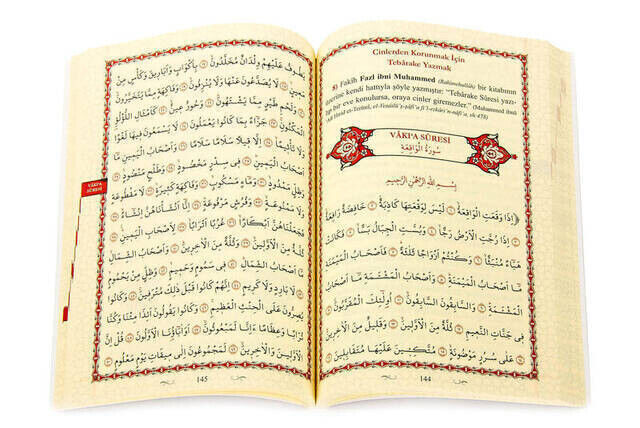 Cinlerden Korunmak İçin
Tebârake Yazmak
8) Fakîh Fazl ibni Muhammed (Rahimehullâh) bir kitabının
üzerine kendi hattıyla şöyle yazmıştır: "Tebârake Sûresi yazı-
lıp bir eve konulursa, oraya cinler giremezler." (Muhammed ibnü
el-Vesâilü'ş-şâfi'a fi'l-ezkâri'n-nâfi'a, sh:478)
VÂKI'A SÛRESİ
سُورَةُ الْوَاقِعَةِ
بِسْمِ اللهِ الرَّحْمٰنِ الرَّحِيمِ
﴿إِذَا وَقَعَتِ الْوَاقِعَةُ ۝ لَيْسَ لِوَقْعَتِهَا كَاذِبَةٌ ۝ خَافِضَةٌ رَافِعَةٌ
۝ إِذَا رُجَّتِ الْأَرْضُ رَجًّا ۝ وَبُسَّتِ الْجِبَالُ بَسًّا ۝ فَكَانَتْ
هَبَاءً مُنْبَثًّا ۝ وَكُنْتُمْ أَزْوَاجًا ثَلَاثَةً ۝ فَأَصْحَابُ الْمَيْمَنَةِ
مَا أَصْحَابُ الْمَيْمَنَةِ ۝ وَأَصْحَابُ الْمَشْئَمَةِ مَا أَصْحَابُ
الْمَشْئَمَةِ ۝ وَالسَّابِقُونَ السَّابِقُونَ ۝ أُولٰئِكَ الْمُقَرَّبُونَ ۝
فِي جَنَّاتِ النَّعِيمِ ۝ ثُلَّةٌ مِنَ الْأَوَّلِينَ ۝ وَقَلِيلٌ مِنَ الْآخِرِينَ
۝ عَلَى سُرُرٍ مَوْضُونَةٍ ۝ مُتَّكِئِينَ عَلَيْهَا مُتَقَابِلِينَ ۝
144
يَطُوفُ عَلَيْهِمْ وِلْدَانٌ مُخَلَّدُونَ ۝ بِأَكْوَابٍ وَأَبَارِيقَ وَكَأْسٍ مِنْ
مَعِينٍ ۝ لَا يُصَدَّعُونَ عَنْهَا وَلَا يُنْزِفُونَ ۝ وَفَاكِهَةٍ مِمَّا يَتَخَيَّرُونَ
۝ وَلَحْمِ طَيْرٍ مِمَّا يَشْتَهُونَ ۝ وَحُورٌ عِينٌ ۝ كَأَمْثَالِ اللُّؤْلُؤِ
الْمَكْنُونِ ۝ جَزَاءً بِمَا كَانُوا يَعْمَلُونَ ۝ لَا يَسْمَعُونَ فِيهَا لَغْوًا
وَلَا تَأْثِيمًا ۝ إِلَّا قِيلًا سَلَامًا سَلَامًا ۝ وَأَصْحَابُ الْيَمِينِ مَا أَصْحَابُ
الْيَمِينِ ۝ فِي سِدْرٍ مَخْضُودٍ ۝ وَطَلْحٍ مَنْضُودٍ ۝ وَظِلٍّ
مَمْدُودٍ ۝ وَمَاءٍ مَسْكُوبٍ ۝ وَفَاكِهَةٍ كَثِيرَةٍ ۝ لَا مَقْطُوعَةٍ
وَلَا مَمْنُوعَةٍ ۝ وَفُرُشٍ مَرْفُوعَةٍ ۝ إِنَّا أَنْشَأْنَاهُنَّ إِنْشَاءً ۝
فَجَعَلْنَاهُنَّ أَبْكَارًا ۝ عُرُبًا أَتْرَابًا ۝ لِأَصْحَابِ الْيَمِينِ ۝
ثُلَّةٌ مِنَ الْأَوَّلِينَ ۝ وَثُلَّةٌ مِنَ الْآخِرِينَ ۝ وَأَصْحَابُ الشِّمَالِ
مَا أَصْحَابُ الشِّمَالِ ۝ فِي سَمُومٍ وَحَمِيمٍ ۝ وَظِلٍّ مِنْ يَحْمُومٍ
۝ لَا بَارِدٍ وَلَا كَرِيمٍ ۝ إِنَّهُمْ كَانُوا قَبْلَ ذٰلِكَ مُتْرَفِينَ ۝ وَكَانُوا
يُصِرُّونَ عَلَى الْحِنْثِ الْعَظِيمِ ۝ وَكَانُوا يَقُولُونَ أَئِذَا مِتْنَا وَكُنَّا
تُرَابًا وَعِظَامًا أَئِنَّا لَمَبْعُوثُونَ ۝ أَوَآبَاؤُنَا الْأَوَّلُونَ ۝ قُلْ إِنَّ
الْأَوَّلِينَ وَالْآخِرِينَ ۝ لَمَجْمُوعُونَ إِلَى مِيقَاتِ يَوْمٍ مَعْلُومٍ ۝
145
VÂKI'A
SÛRESİ